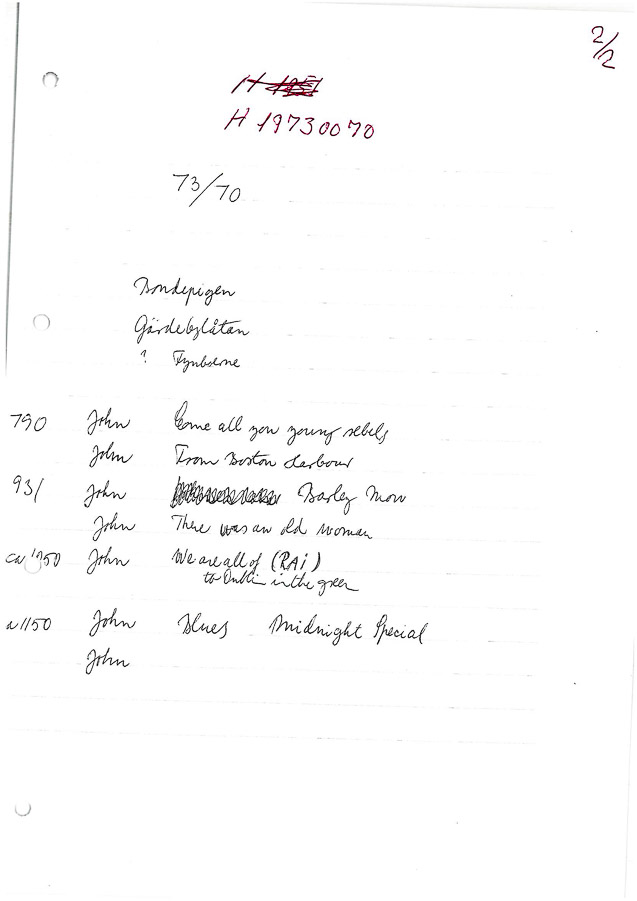 2/2
H 1951
H 19730070
73/70
Bondepigen
Gärdebylåtan
? Fynboerne
790 John Come all you young rebels
John From Boston Harbour
931 John Barley Mow
John There was an old woman
ca 1050 John We are all of (RAI)
to Dublin in the green
1150 John Blues Midnight Special
John